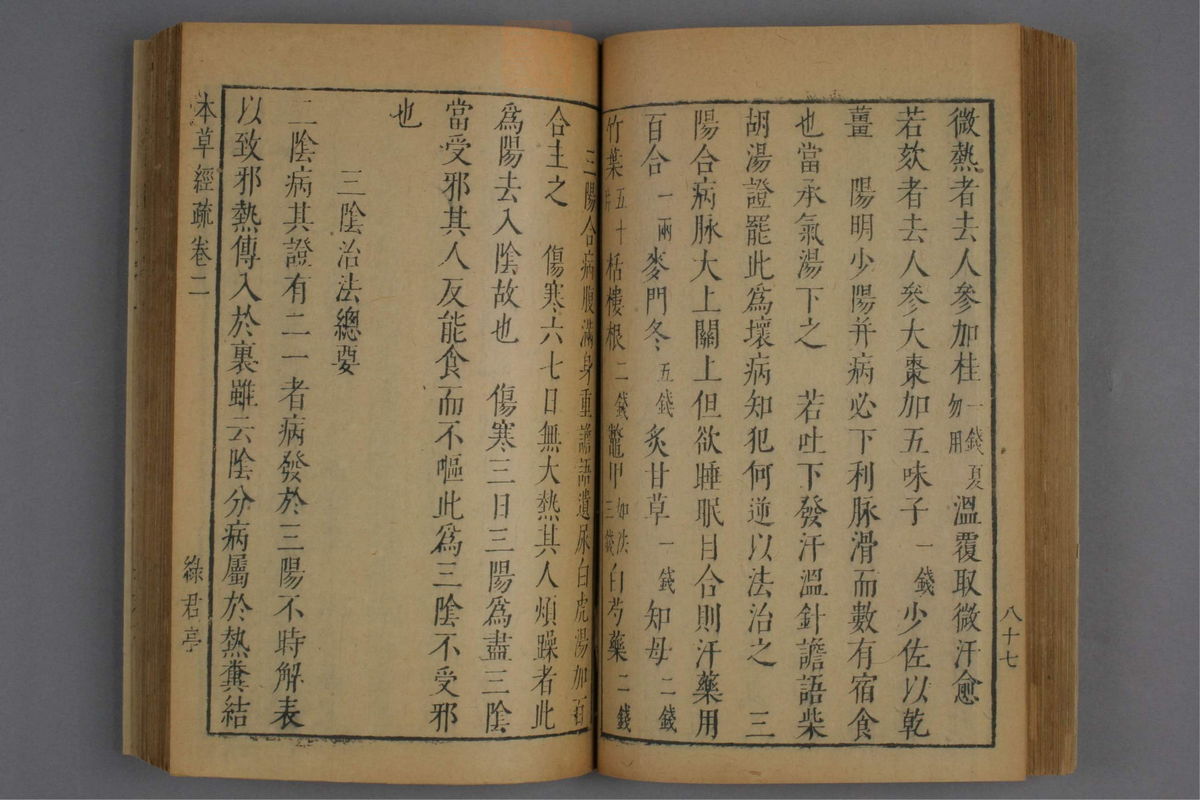 微熱者去人參加桂一錢夏勿用溫覆取微汗愈
若欬者去人參大棗加五味子一錢少佐以乾
薑　陽明少陽并病必下利脉滑而數有宿食
也當承氣湯下之　若吐下發汗溫針譫語柴
胡湯證罷此爲壞病知犯何逆以法治之　三
陽合病脉大上關上但欲睡眠目合則汗藥用
百合一兩麥門冬五錢炙甘草一錢知母二錢
竹葉五十栝樓根二錢鼈甲如法三錢白芍藥二錢
八十七
三陽合病腹滿身重譫語遺尿白虎湯加百
合主之　傷寒六七日無大熱其人煩躁者此
爲陽去入陰故也　傷寒三日三陽爲盡三陰
當受邪其人反能食而不嘔此爲三陰不受邪
也
三陰治法總要
二陰病其證有二一者病發於三陽不時解表
以致邪熱傳入於裏雖云陰分病屬於熱糞結
本草經疏卷二
綠君亭